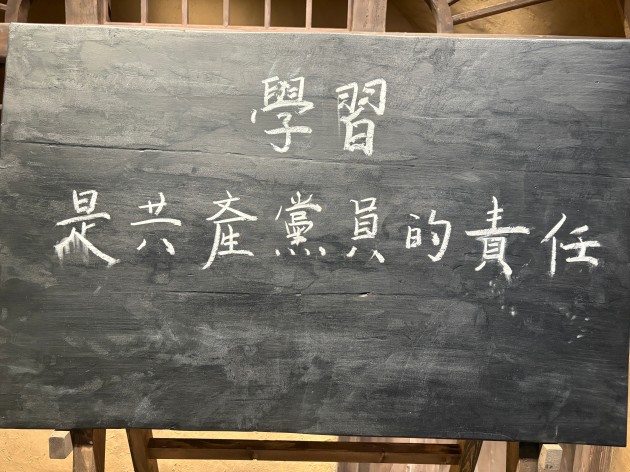 學習
是共產黨員的責任